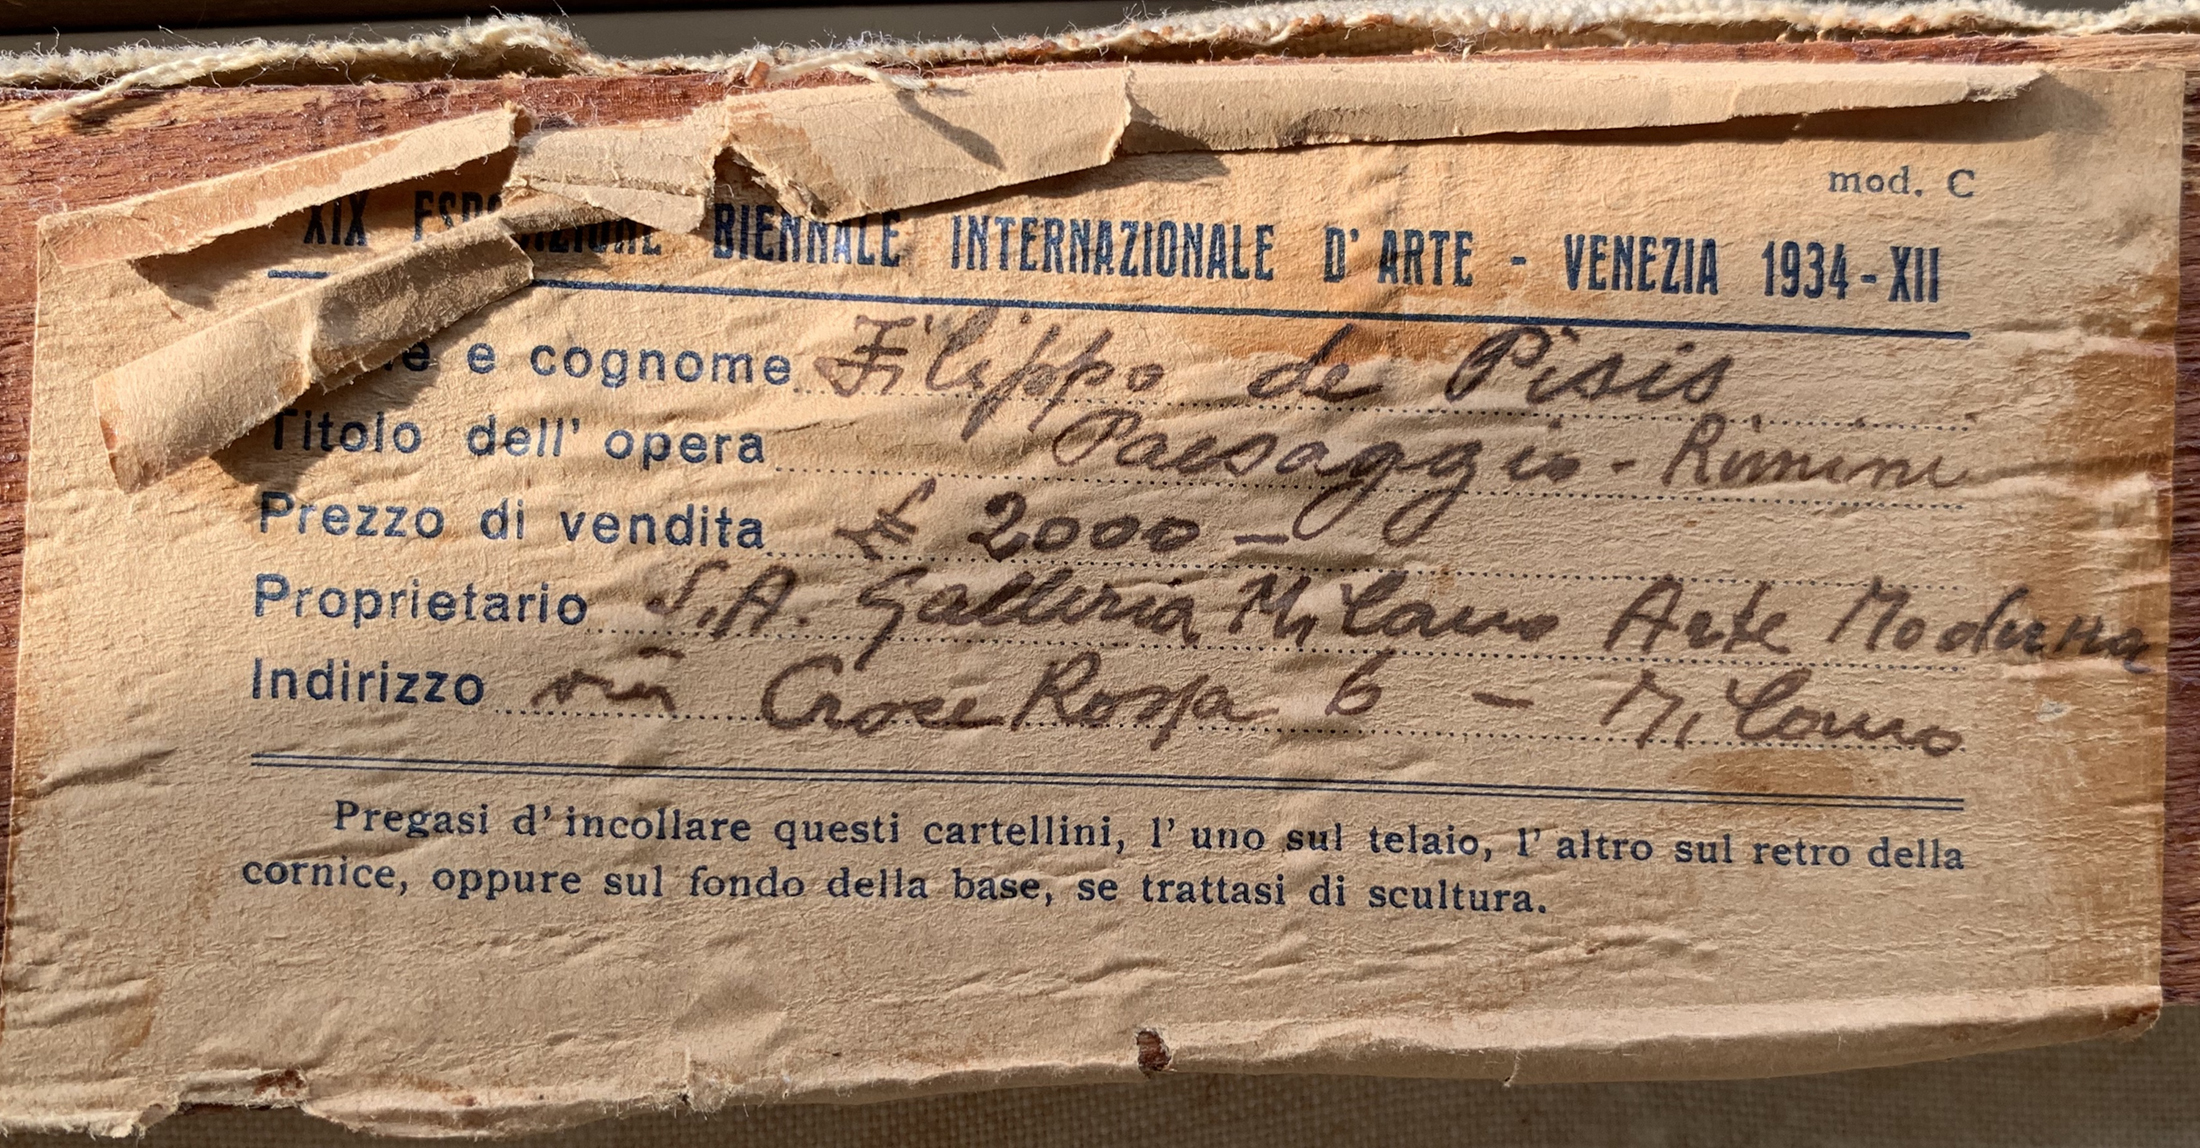 mod. C
XIX ESPOSIZIONE BIENNALE INTERNAZIONALE D' ARTE - VENEZIA 1934-XII
e e cognome Filippo de Pisis
Titolo dell' opera Paesaggio - Rimini
Prezzo di vendita £ 2000 -
Proprietario S.A. Galleria Milano Arte Moderna
Indirizzo via Croce Rossa 6 - Milano
Pregasi d' incollare questi cartellini, l' uno sul telaio, l' altro sul retro della
cornice, oppure sul fondo della base, se trattasi di scultura.